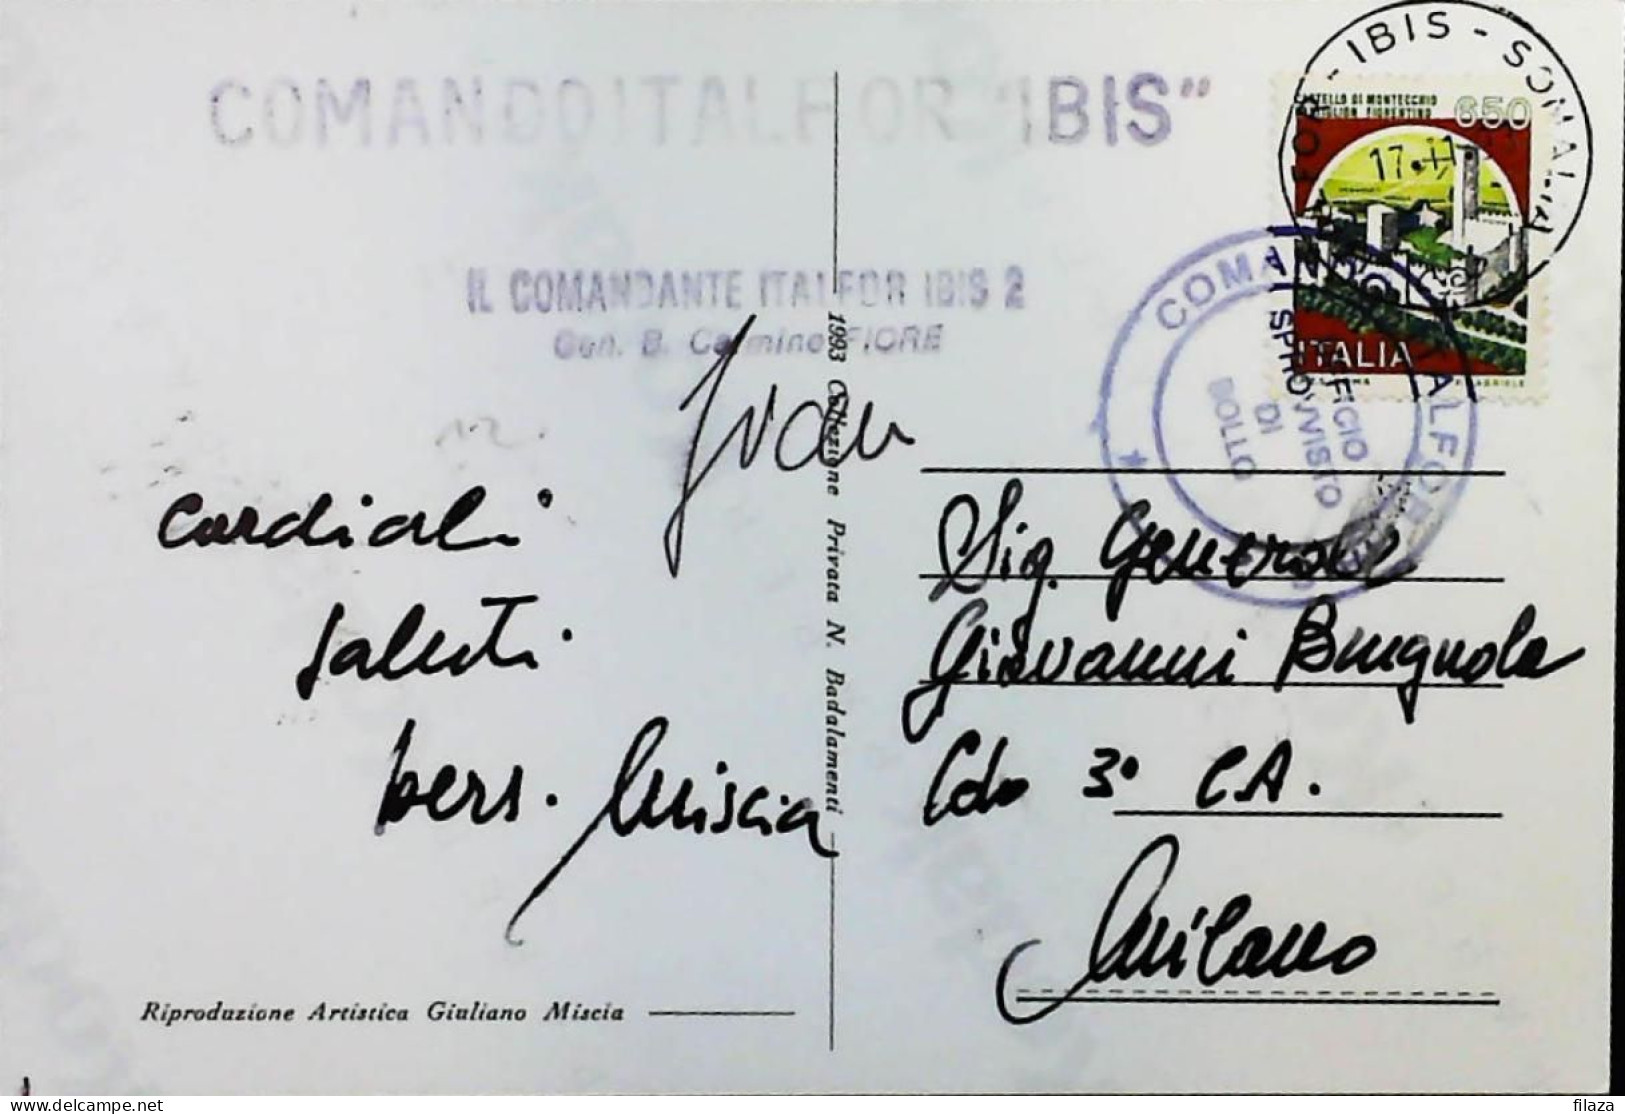 COMANDO ITALFOR "IBIS"
IL COMANDANTE ITALFOR IBIS 2
Gen. B. Carmine FIORE
cordiali
saluti
bers. Miscia
Riproduzione Artistica Giuliano Miscia
1993 Collezione Privata N. Badalamenti
- IBIS - SOMALIA
17.11
CASTELLO DI MONTECCHIO
CASTIGLION FIORENTINO
650
ITALIA
COMANDO ITALFOR
UFFICIO
SPROVVISTO
DI
BOLLO
Sig. Generale
Giovanni Brugnola
Cdo 3° C.A.
Milano
filaza